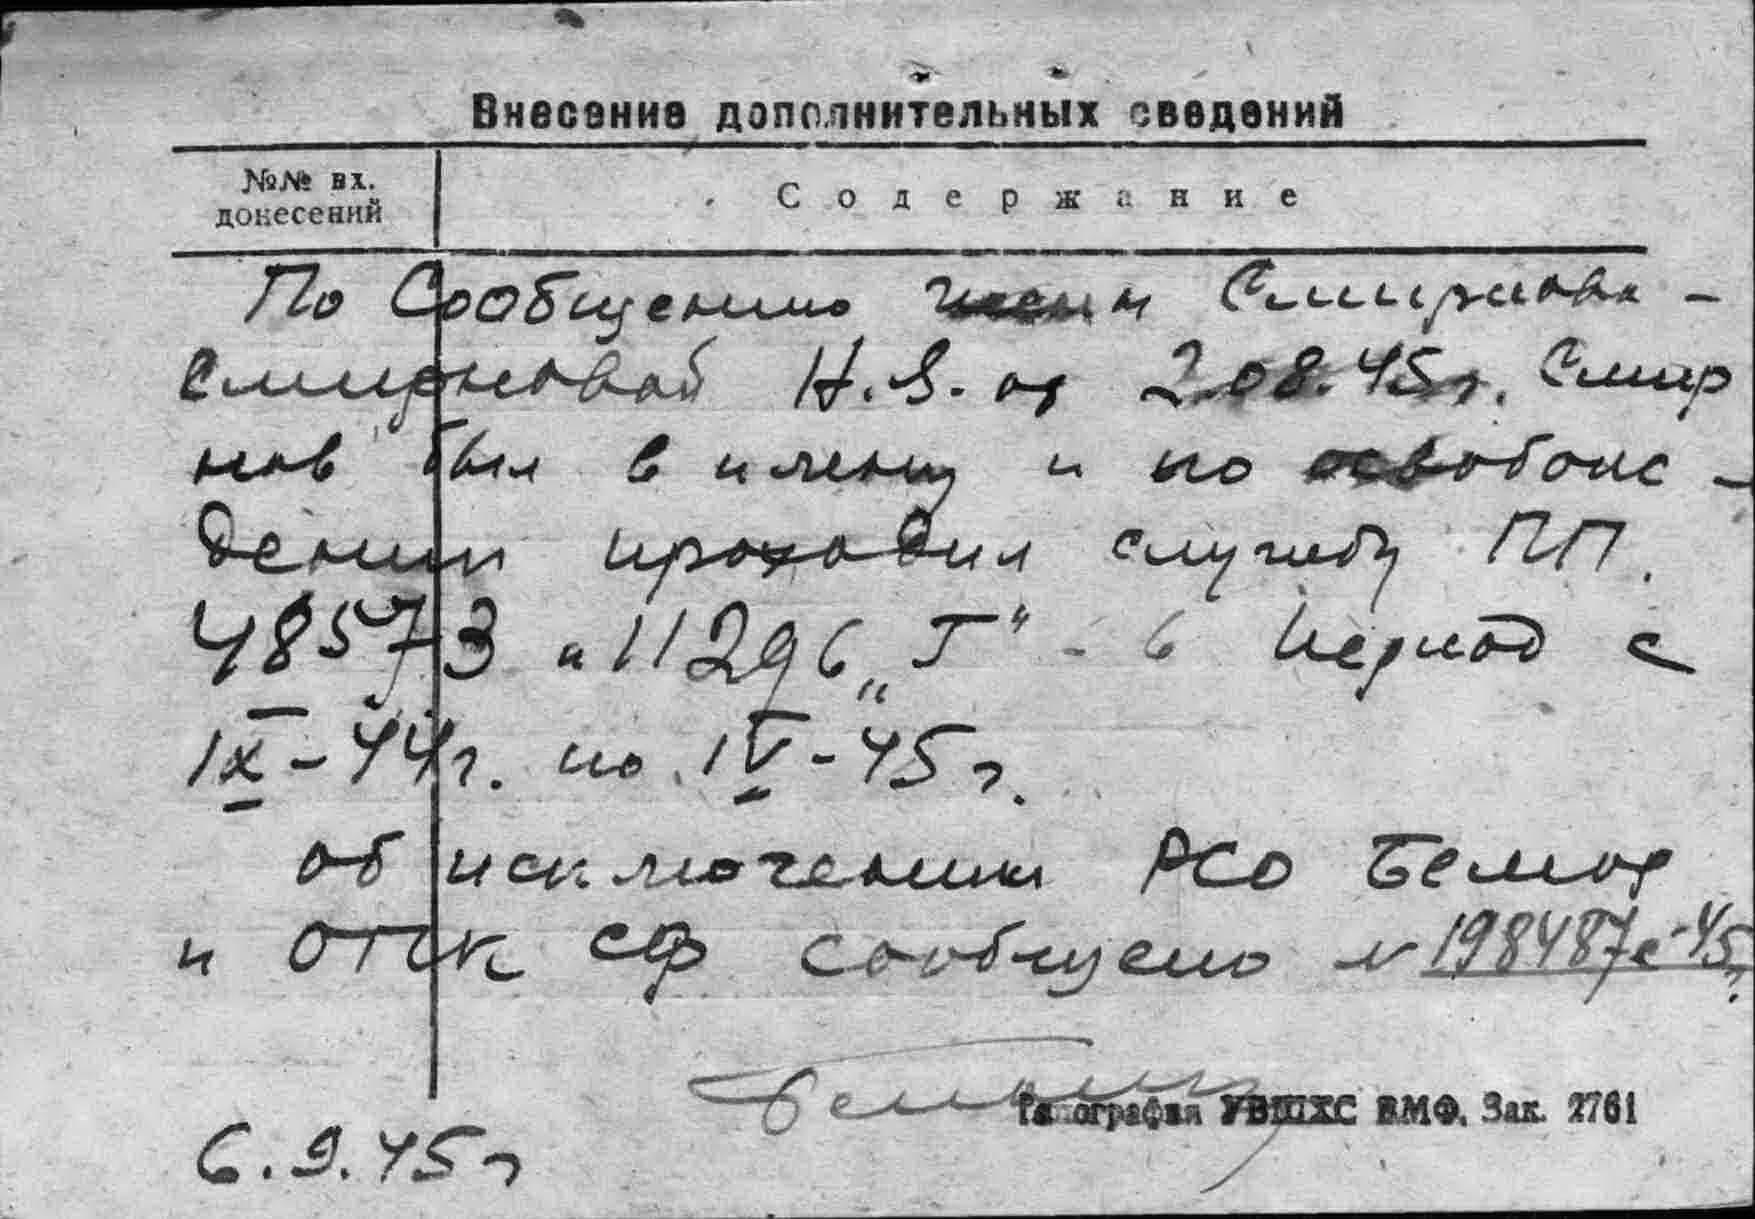 Внесение дополнительных сведений
№№ вх. донесений
Содержание
По Сообщению жены Смирнова -
Смирновой Н.Я. от 2.08.45г. Смир
нов был в плену и по освобож -
дении проходил службу ПП.
48573 и 11296 „Т" - в период с
IX-44г. по IV-45г.
об исключении РСО Белмор
и ОТСК СФ сообщено N 198487с-45г.
Типография УВШХС ВМФ. Зак. 2761
6.9.45г